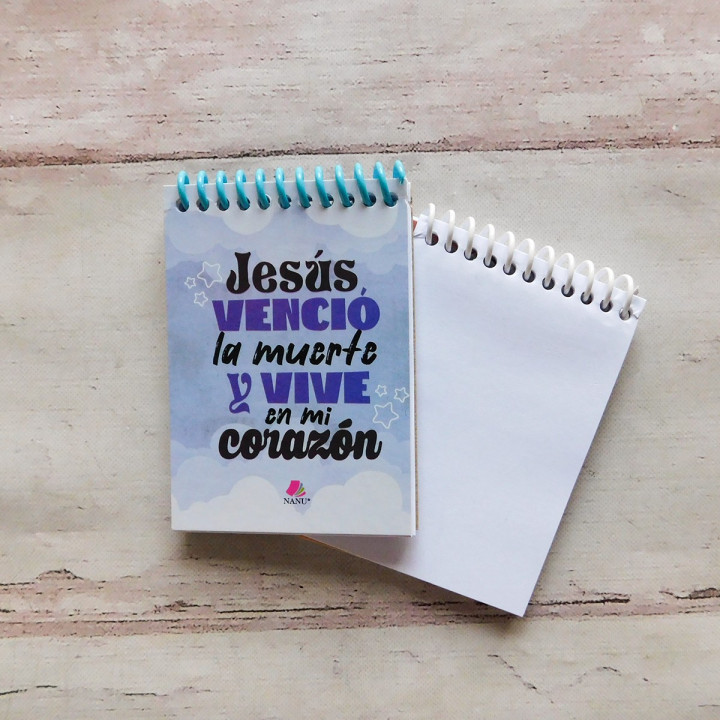 Jesús
VENCIÓ
la muerte
Y VIVE
en mi
corazón
NANU®